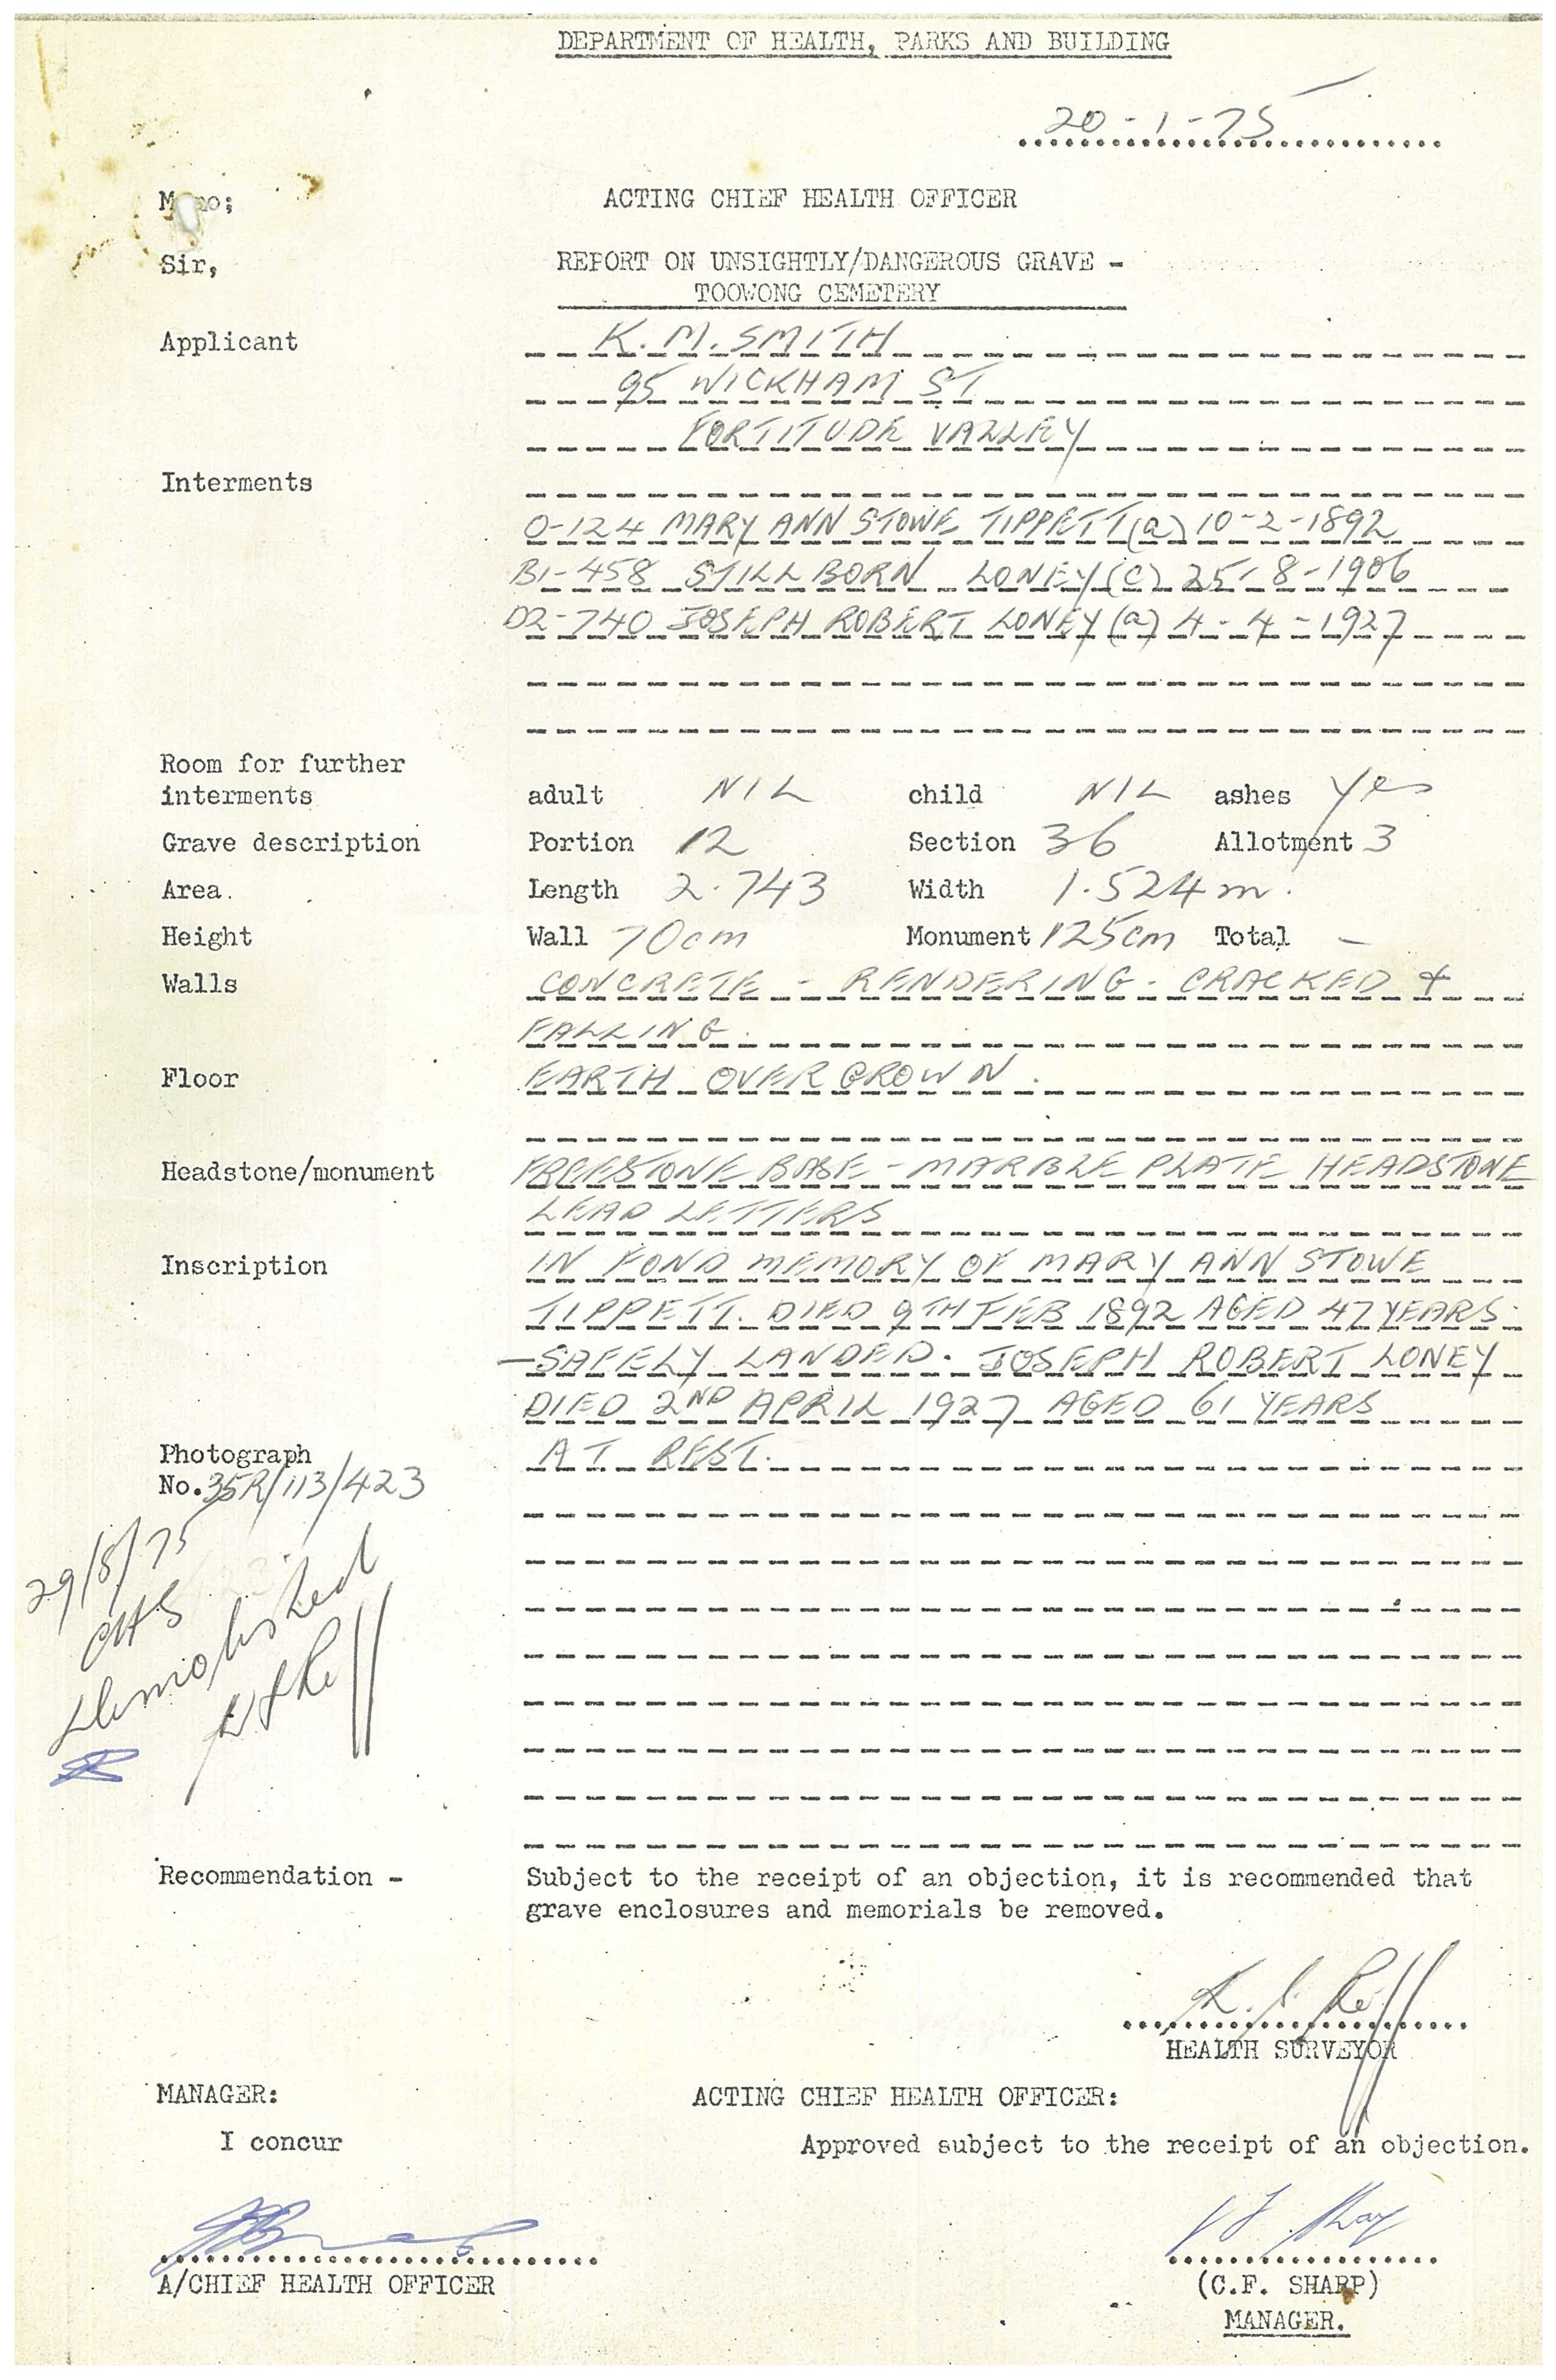 DEPARTMENT OF HEALTH, PARKS AND BUILDING
20-1-75
ACTING CHIEF HEALTH OFFICER
Sir,
REPORT ON UNSIGHTLY/DANGEROUS GRAVE -
TOOWONG CEMETERY
Applicant K. M. SMITH
95 WICKHAM ST
FORTITUDE VALLEY
Interments
O-124 MARY ANN STOWE TIPPETT (a) 10-2-1892
B1-458 STILLBORN LONEY (c) 25-8-1906
D2-740 JOSEPH ROBERT LONEY (a) 4-4-1927
Room for further
interments adult NIL child NIL ashes yes
Grave description Portion 12 Section 36 Allotment 3
Area. Length 2.743 Width 1.524 m.
Height Wall 70cm Monument 125cm Total -
Walls CONCRETE - RENDERING - CRACKED +
FALLING.
Floor EARTH OVERGROWN.
Headstone/monument FREESTONE BASE - MARBLE PLATE HEADSTONE
LEAD LETTERS
Inscription IN FOND MEMORY OF MARY ANN STOWE
TIPPETT. DIED 9TH FEB 1892 AGED 47 YEARS.
-SAFELY LANDED. JOSEPH ROBERT LONEY
DIED 2ND APRIL 1927 AGED 61 YEARS
Photograph AT REST.
No. 35R/113/423
29/8/75
demolished
Recommendation - Subject to the receipt of an objection, it is recommended that
grave enclosures and memorials be removed.
HEALTH SURVEYOR
MANAGER: ACTING CHIEF HEALTH OFFICER:
I concur Approved subject to the receipt of an objection.
A/CHIEF HEALTH OFFICER (C.F. SHARP)
MANAGER.